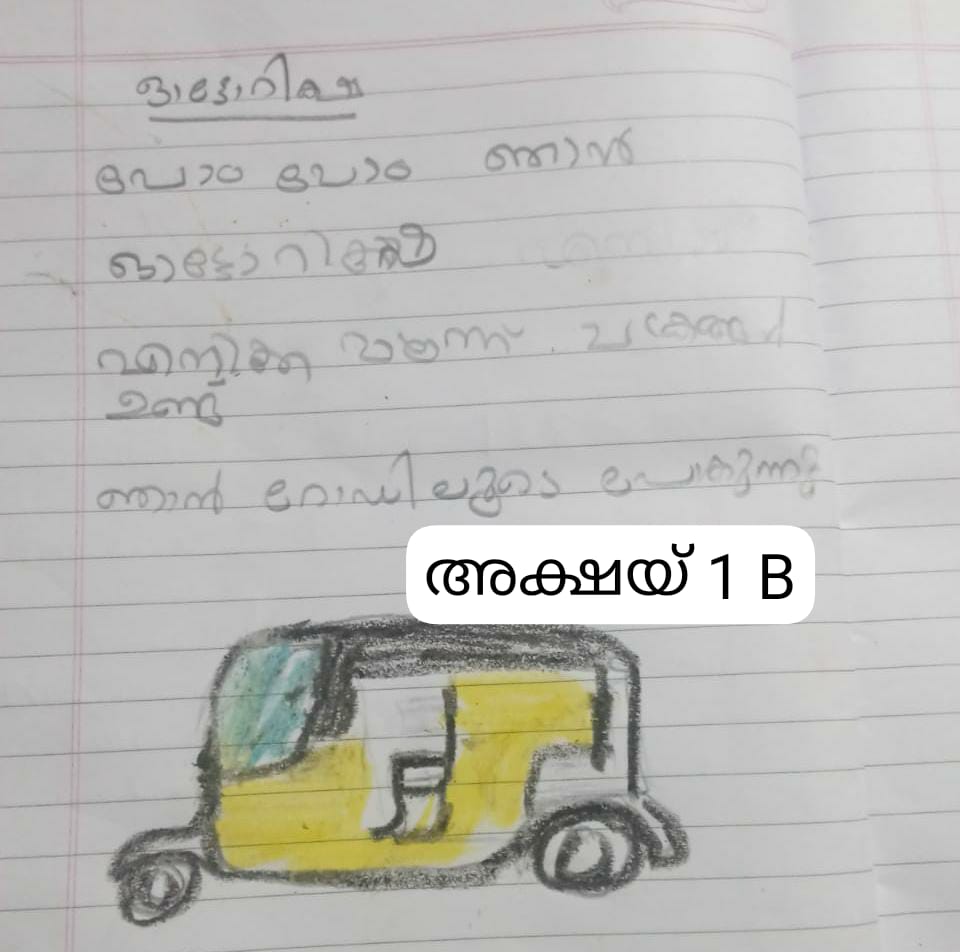 ഓട്ടോറിക്ഷ
പോം പോം ഞാൻ
ഓട്ടോറിക്ഷ
എനിക്ക് മൂന്ന് ചക്രങ്ങൾ
ഉണ്ട്
ഞാൻ റോഡിലൂടെ പോകുന്നു
അക്ഷയ് 1 B